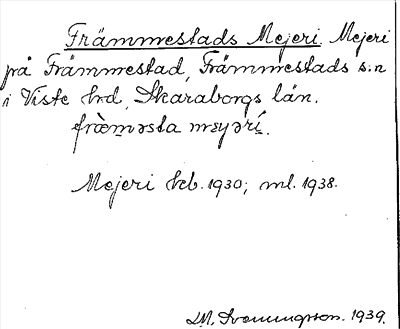 Främmestads Mejeri. Mejeri
på Främmestad, Främmestads s:n
i Viste hrd, Skaraborgs län.
fræ̀məsta mɛyərí.
Mejeri keb. 1930; ml. 1938.
1939.